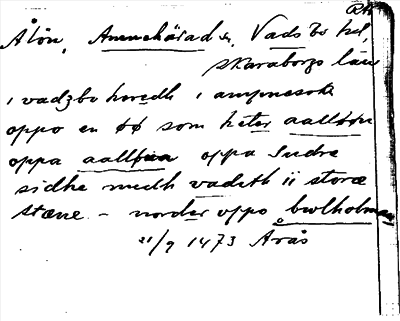 RA
Ålön, Amnehärad sn, Vadsbo hd,
Skaraborgs län
i vadzbo heredh i amponesok
oppo en öö som heter aalløn
oppa aalløn oppa Sudre
sidhe medh vadeth ii storæ
stæne - norder oppo bwlholman
21/9 1473 Arås